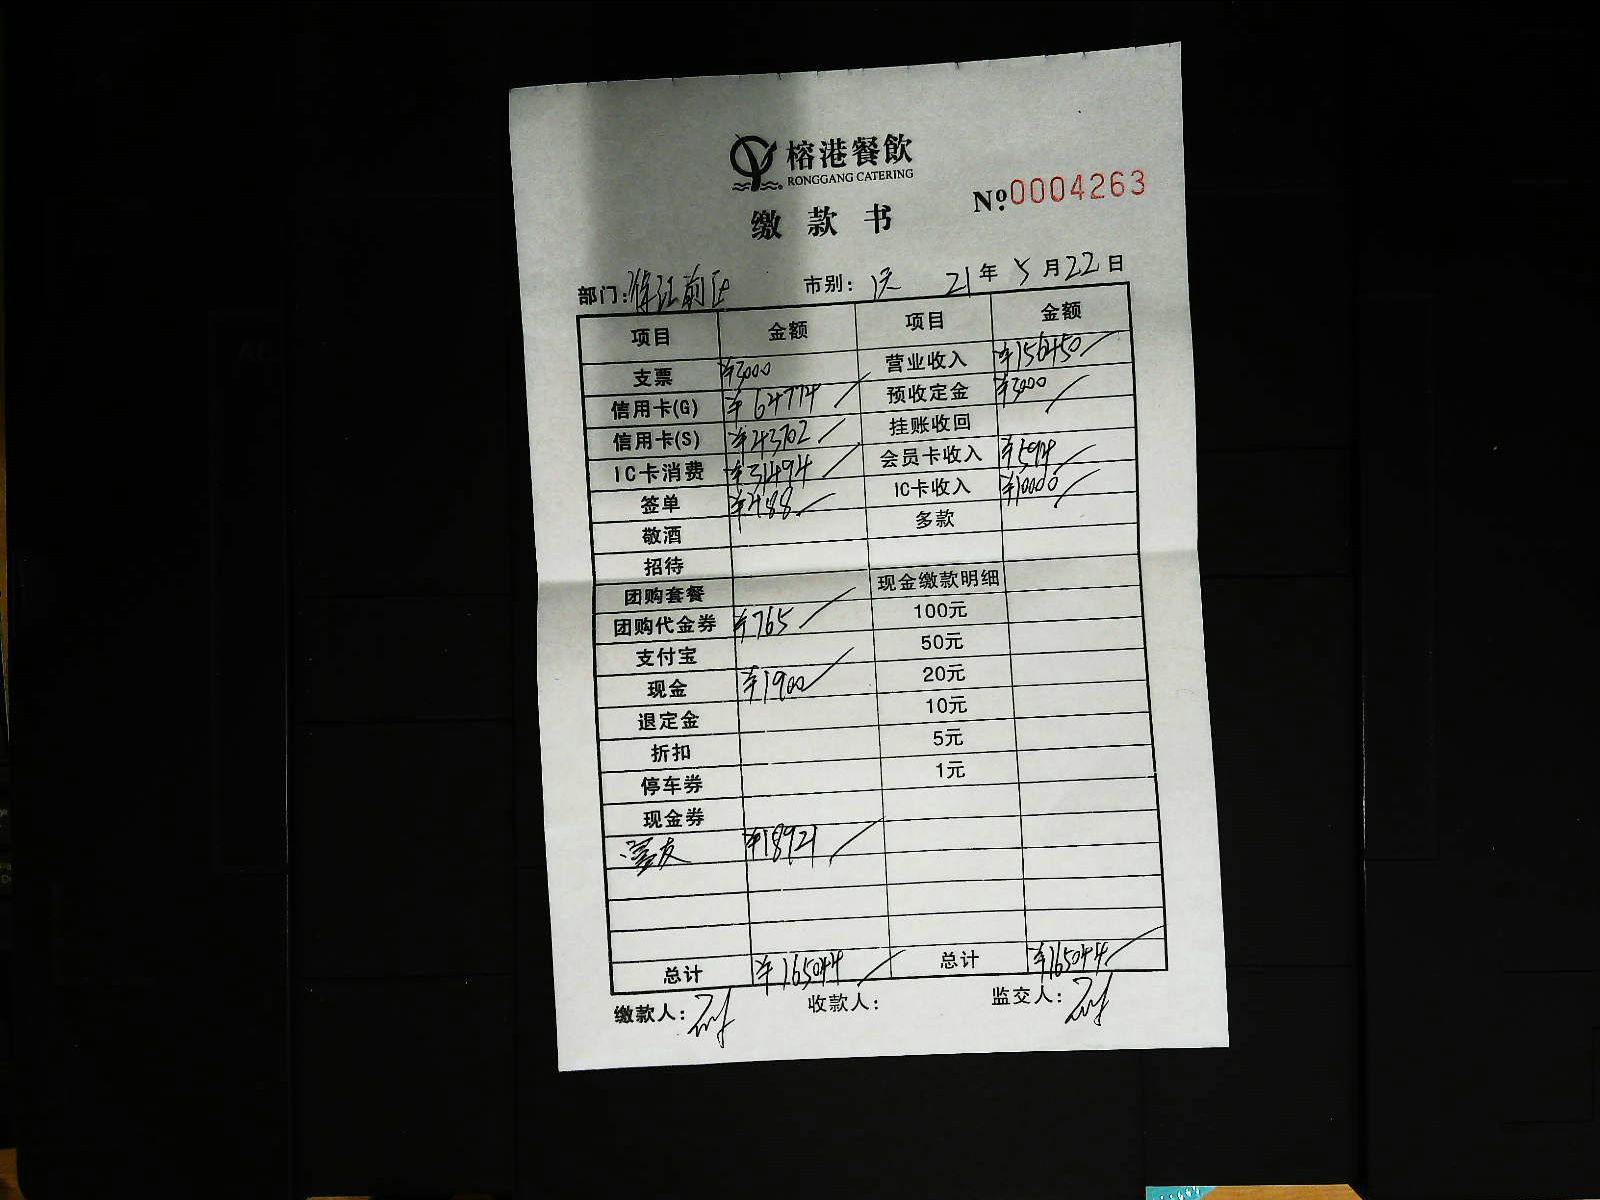 榕港餐飲
RONGGANG CATERING
缴款书
№0004263
部门: 前区 市别: 21年5月22日
项目 金额 项目 金额
支票 ¥3000 营业收入 ¥151450
信用卡(G) ¥64774 预收定金 ¥3000
信用卡(S) ¥43702 挂账收回
IC卡消费 ¥31494 会员卡收入 ¥594
签单 ¥488 IC卡收入 ¥10000
敬酒 多款
招待
团购套餐 现金缴款明细
团购代金券 ¥765 100元
支付宝 50元
现金 ¥1900 20元
退定金 10元
折扣 5元
停车券 1元
现金券
¥18921
总计 ¥165044 总计 ¥165044
缴款人: 收款人: 监交人: